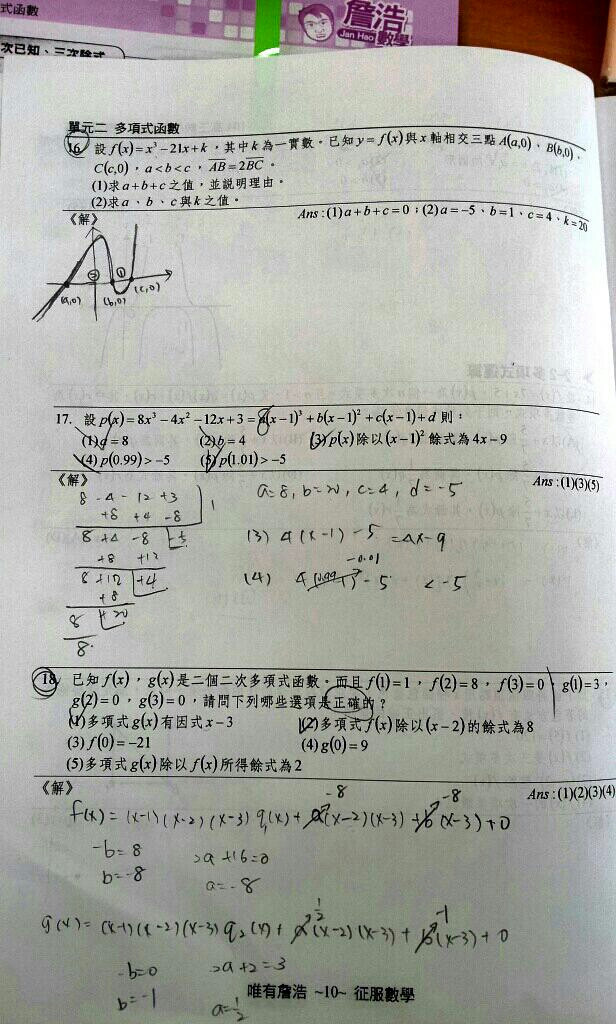 式函數
詹浩
Jan Hao 數學
次已知、三次除式
單元二 多項式函數
16 設f(x)=x³−21x+k，其中k為一實數。已知y=f(x)與x軸相交三點A(a,0)、B(b,0)、
C(c,0)，a<b<c，AB=2B̅C̅。
(1)求a+b+c之值，並説明理由。
(2)求a、b、c與k之值。
《解》
Ans:(1)a+b+c=0；(2)a=−5、b=1、c=4、k=20
② ①
(a,0) (b,0) (c,0)
17. 設p(x)=8x³−4x²−12x+3=a(x−1)³+b(x−1)²+c(x−1)+d則：
(1)a=8 (2)b=4 (3)p(x)除以(x−1)²餘式為4x−9
(4)p(0.99)>−5 (5)p(1.01)>−5
《解》
Ans:(1)(3)(5)
8 -4 -12 +3 | 1
+8 +4 -8
8 +4 -8 -5
+8 +12
8 +12 +4
+8
8 +20
8
a=8, b=20, c=4, d=-5
(3) 4(x-1)-5 =4x-9
-0.01
(4) 4(0.99-1)-5 <-5
18. 已知f(x)，g(x)是二個二次多項式函數。而且f(1)=1，f(2)=8，f(3)=0，g(1)=3，
g(2)=0，g(3)=0，請問下列哪些選項是正確的？
(1)多項式g(x)有因式x−3 (2)多項式f(x)除以(x−2)的餘式為8
(3)f(0)=−21 (4)g(0)=9
(5)多項式g(x)除以f(x)所得餘式為2
《解》
Ans:(1)(2)(3)(4)
-8 -8
f(x)= (x-1)(x-2)(x-3)q₁(x)+a(x-2)(x-3)+b(x-3)+0
-b=8 2a+16=0
b=-8 a=-8
1/2 -1
g(x)= (x-1)(x-2)(x-3)q₂(x)+a(x-2)(x-3)+b(x-3)+0
-b=0 2a+2=3
b=-1 a=1/2
唯有詹浩 ~10~ 征服數學